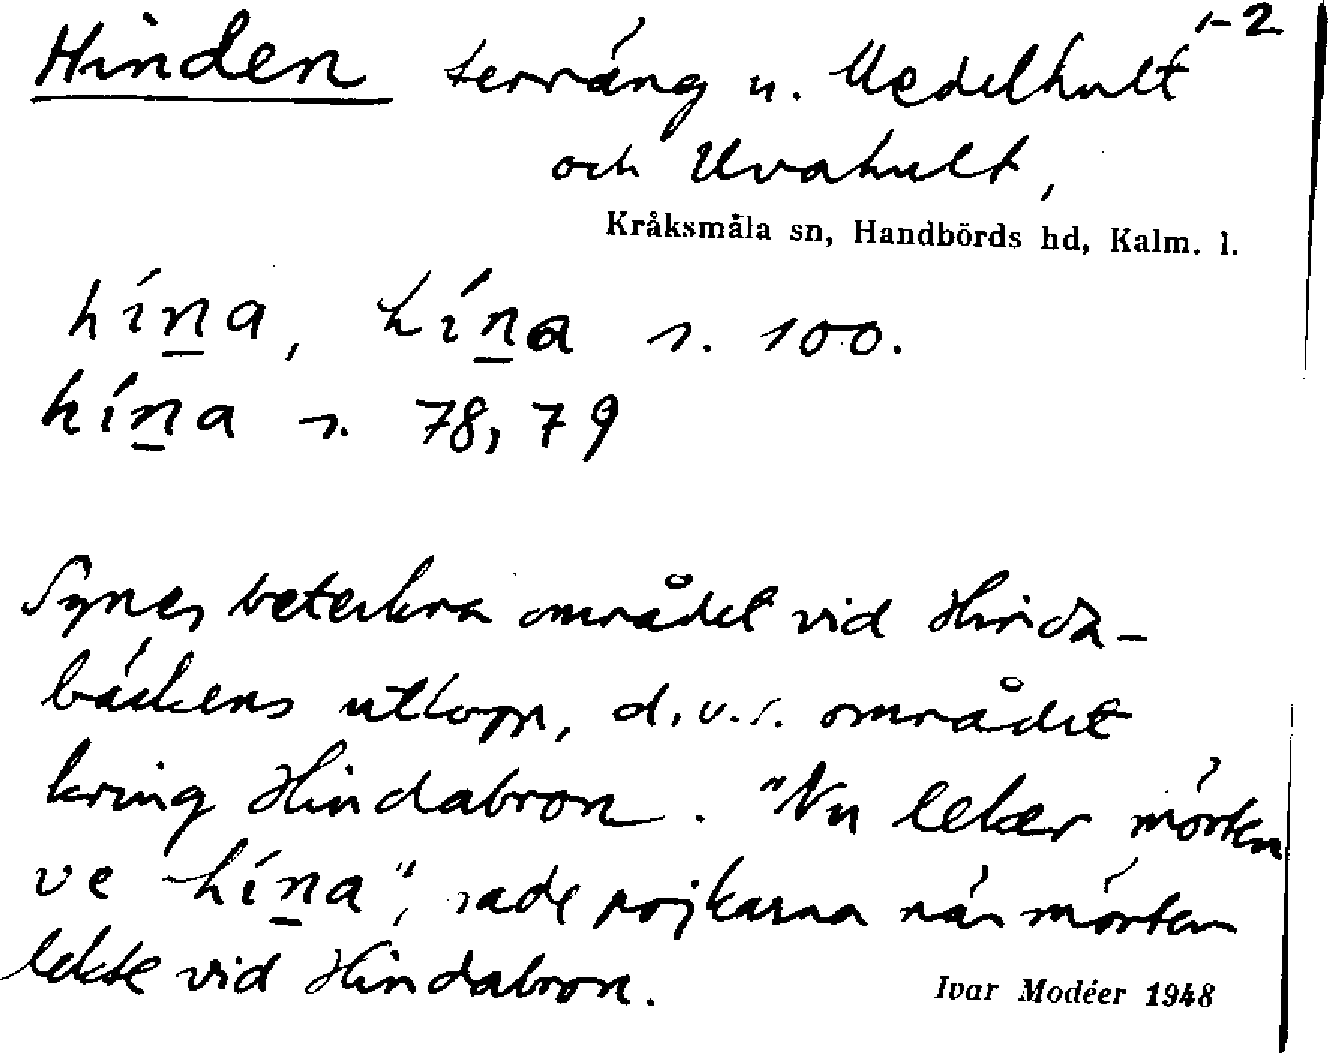 1-2
Hinden terräng u. Medelhult
och Uvahult,
Kråksmåla sn, Handbörds hd, Kalm. l.
hína, hína s. 100.
hína s. 78, 79
Synes beteckna området vid Hinda-
bäckens utlopp, d.v.s. området
kring Hindabron. "Nu leker mörten
ve hína", sade pojkarna när mörten
lekte vid Hindabron.
Ivar Modéer 1948